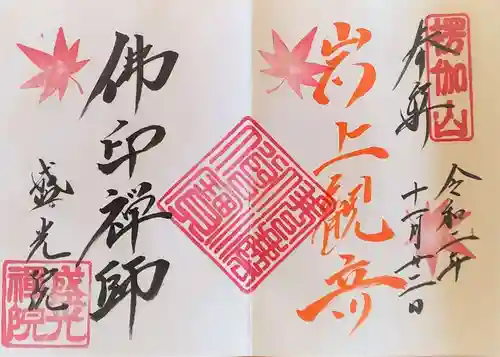 楞伽山
参拝
令和二年
十一月廿二日
岩上観音
佛印禅師
盛光院
盛光
禅院